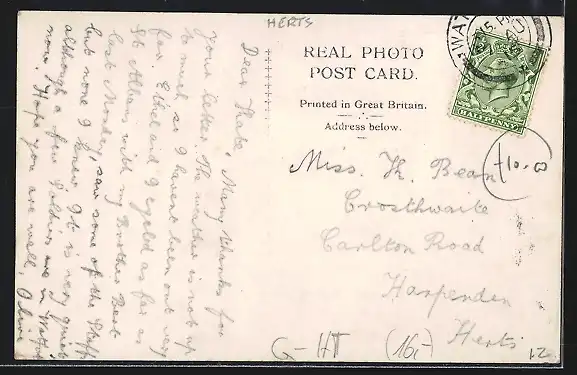 HERTS
REAL PHOTO
POST CARD.
Printed in Great Britain.
Address below.
HALFPENNY
£10.00
Miss. K. Bean
Crosthwaite
Carlton Road
Harpenden
Herts
G- HT (16,-)
12
Dear Kate, Many thanks for
your letter. The weather is not up
to much so I havent been out very
far. Ethel and I cycled as far as
St Albans with my Brother Bert
last Monday, saw some of the Staff
but none I knew. It is very quiet
although a few Soldiers are in
now. Hope you are well, Olive